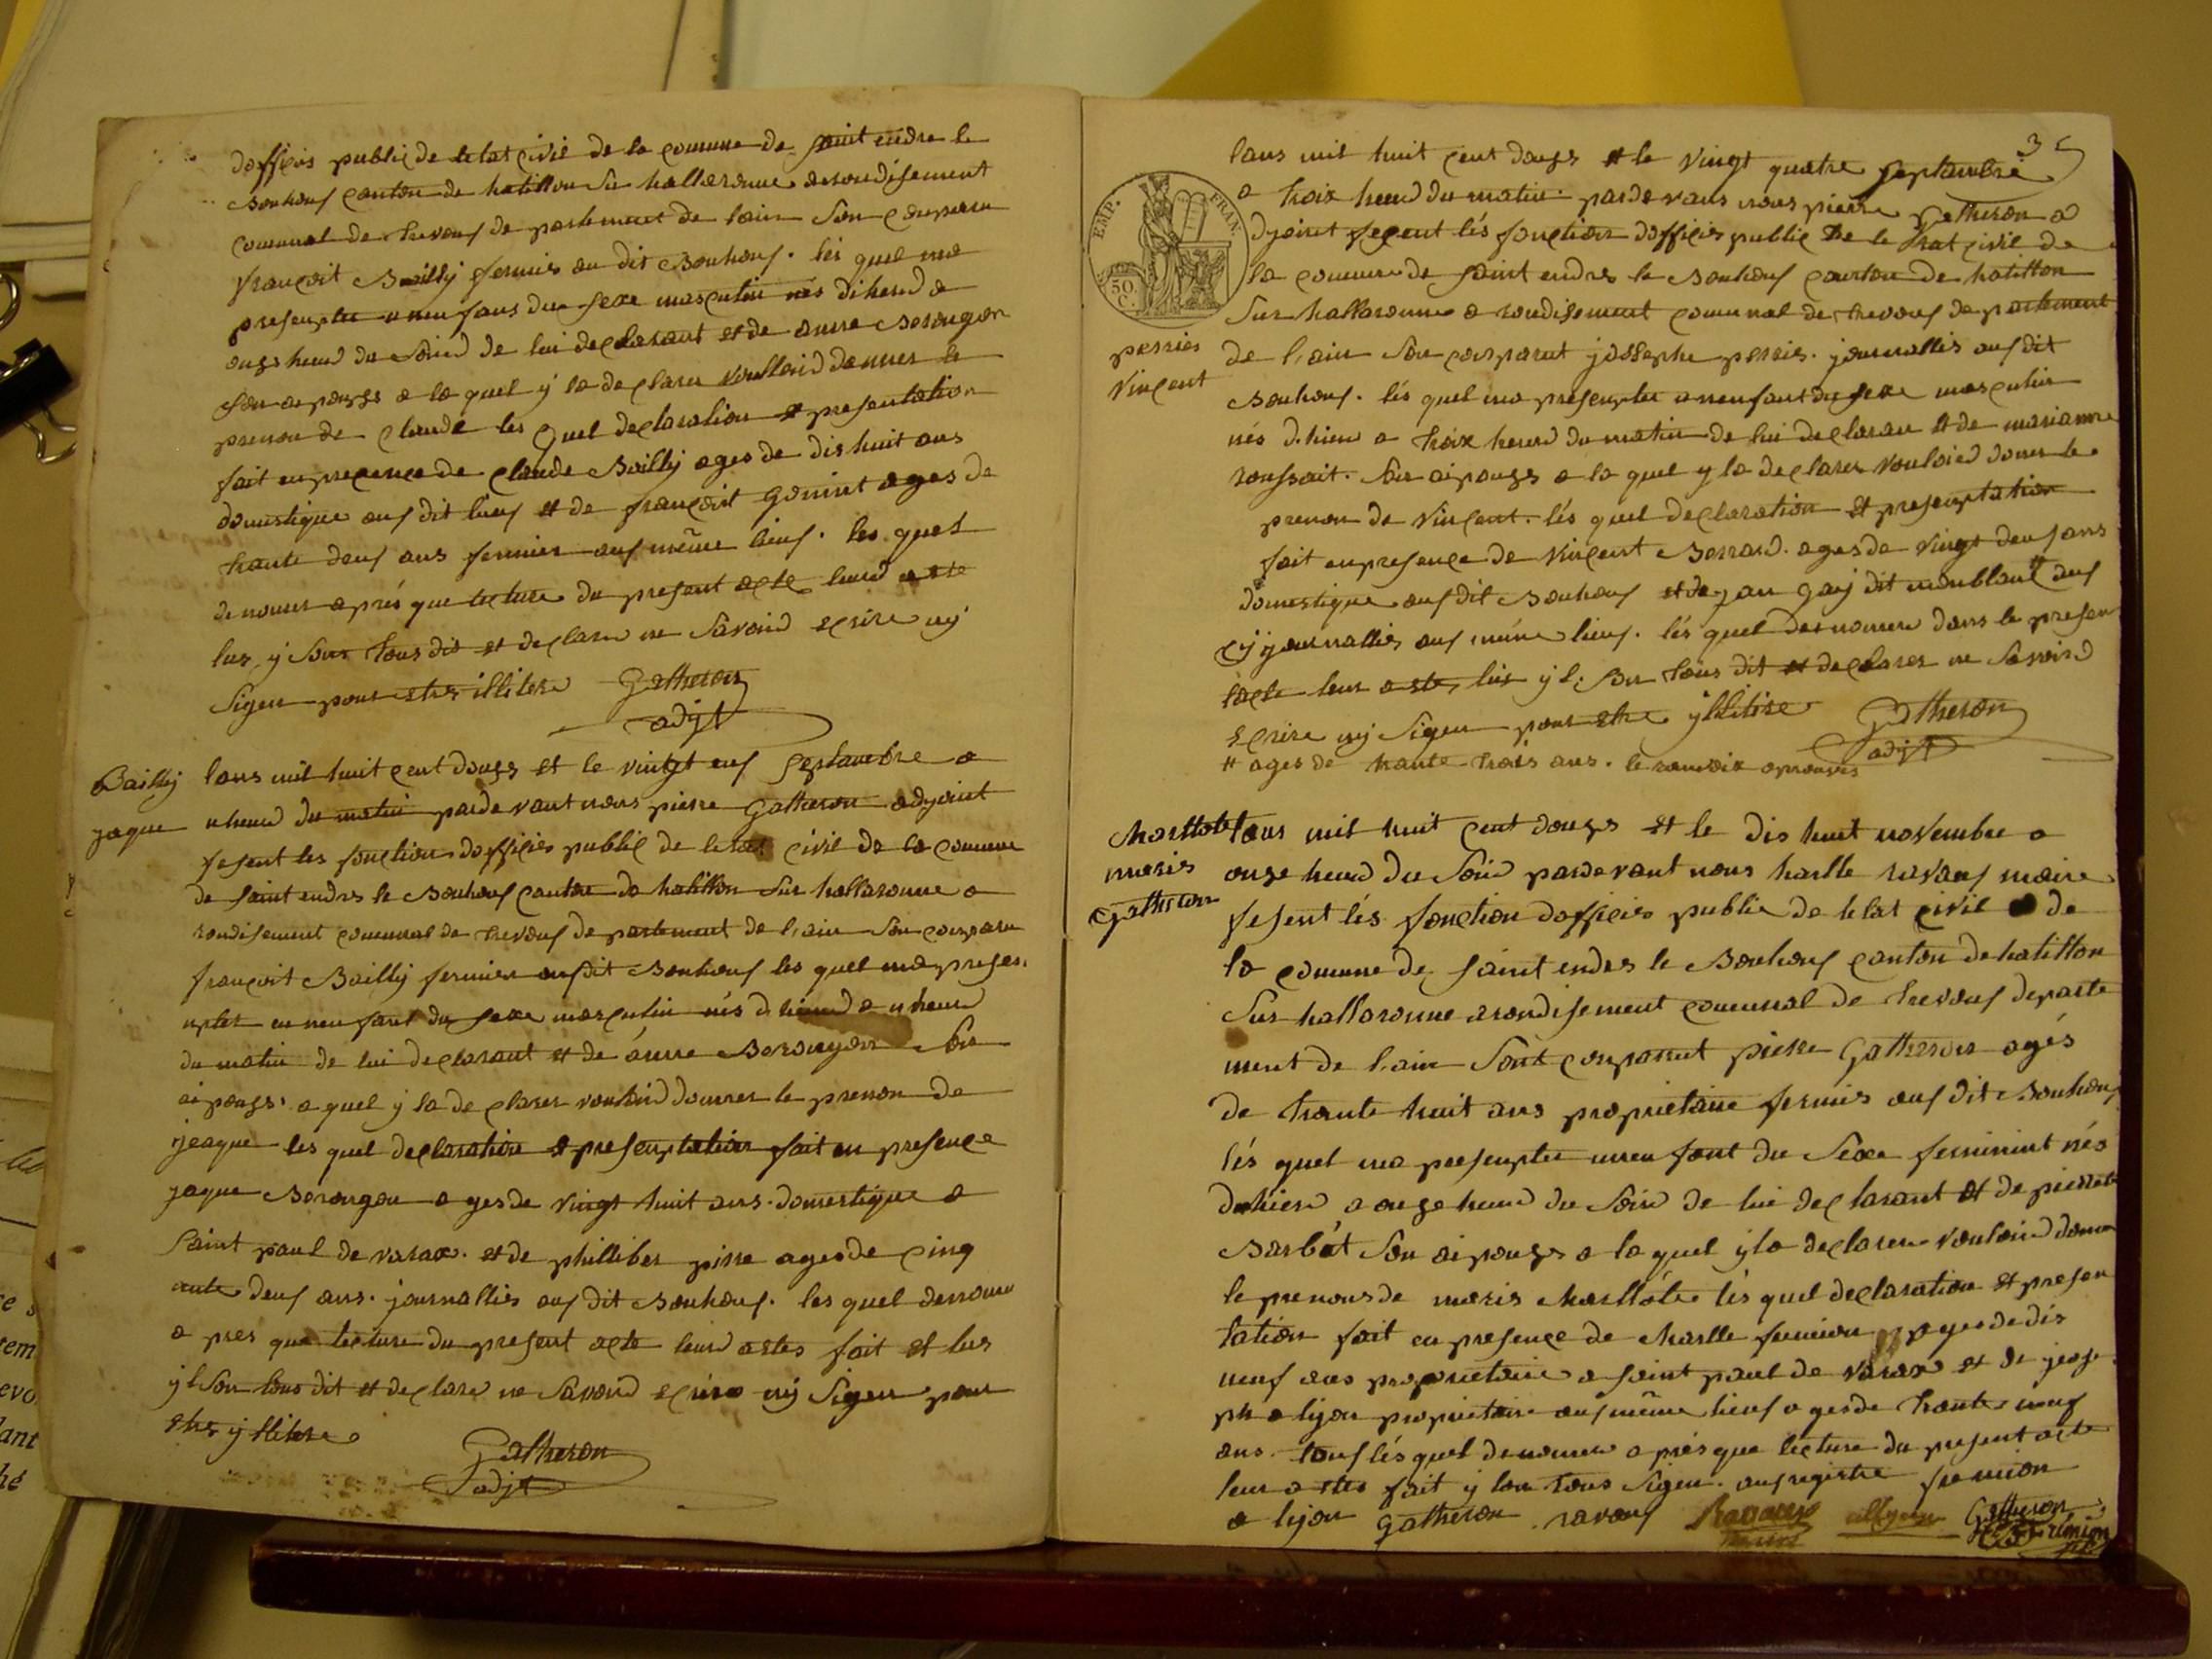 dofficis public de letat civil de la comune de saint endre le
Bouhouf canton de hatillon sur hallaronne arondisement
comunal de trevouf de partement de lain son comparu
françoit Bailly fermier au dit Bouhouf. les quel ma
presenpter unenfans du sexe masculin nés dihierd a
ongs heurd du soird de lui declarant et de anne Berougon
son epongs a la quel y la declarer voulloird donner le
prenon de claude les quel declaration et presentation
fait en presence de claude Bailly ages de dishuit ans
domestique auf dit lieuf et de françoit gonint ages de
trante deuf ans fermier auf même lieuf. les quel
denomer aprés que lecture du present acte leurd a ete
lus, y sont tous dit et declarer ne savoird ecrire ny
signer pour etres illitere Gatheron
adjt
Bailly
jaque
lans mil huit cent dougs et le vingt euf septambre a
uheurd du matin parde vant nous pierre Gatheron adjoint
fesent les fonction dofficier public de letat civil de la comune
de saint endres le Bouhouf canton de hatillon sur hallaronne a
rondisement comunal de trevouf de partement de l'ain son comparu
françoit Bailly fermier auf dit Bouhouf les quel ma presen
upter un neufant du sexe masculin nés d hierd a uheurd
du matin de lui declarant et de anne Berougon son
aipongs. a quel y la declarer voulloird donner le prenon de
jeaque les quel declaration et presenptation fait en presence
jaque Berougon ages de vingt huit ans. domestique a
saint paul de varax. et de philliber pirre ages de cinq
ante deuf ans. journallier auf dit Bouhouf. les quel denomer
a pres que lecture du present acte leurd astes fait et lus
yl son tous dit et declarer ne savoird ecrire ny signer pour
etres yllitere
Gatheron
adjt
35
EMP. FRAN.
50 C.
lans mil huit cent dougs et le vingt quatre septambre
a troix heurd du matin. pardevans nous pierre gatheron a
djoint fecent lés fonction dofficier public de le trat civil de
la comune de saint endres le Bouhouf canton de hatillon
sur hallaronne a rondisement comunal de trevouf de partement
perrier
Vincent
de l'ain son comparut jossephe perrier. journallier auf dit
Bouhouf. lés quel ma presenpter unenfant du sexe masculin
nés d. hieu a troix heurd du matin de lui declarau et de marianne
roussait. son aipongs a la quel y la declarer vouloird donner le
prenon de vincent. lés quel declaration et presenptation
fait enpresence de vincent Berrard. ages de vingt deuf ans
domestique auf dit Bouhouf et de jan gay dit monblant # auf
cy journallier auf même lieuf. lés quel denomer dans le presen
tacte leur aste, luis yl. son tous dit et declarer ne savoird
ecrire ny signer pour etre yllitire Gatheron
adjt
# ages de trante trois ans. le ranvoix aprouver
Charllote
maris
Gatheron
lans mil huit cent dougs et le dis huit novembre a
onze heurd du soird pardevant nous harlle ravouf maire
fesent lés fonction dofficier public de letat civil de
la comune de saint endres le Bouhouf canton de hatillon
sur hallaronne arondisement comunal de trevouf departe
ment de l'ain sont comparut pierre Gatheron agés
de trante huit ans proprietaire fermier auf dit Bouhouf
lés quel ma presenpter unenfant du sexe feminint nés
duhierd a onze heurd du soird de lui declarant et de pierrete
Barbét son aipongs a la quel yla declarer vouloird doner
le prenons de maris charllóte lés quel declaration et presen
tation fait en presence de charlle femion ages de dis
neuf ans proprietaire a saint paul de varax et de jeose
ph a lijon proprietaire auf même lieuf ages de trante neuf
ans. touf lés quel denomer a prés que lecture du present acte
leur a etes fait y lon tous signer. auf registre femion
a lijon gatheron. ravouf Ravoux allijon Gatheron
maire